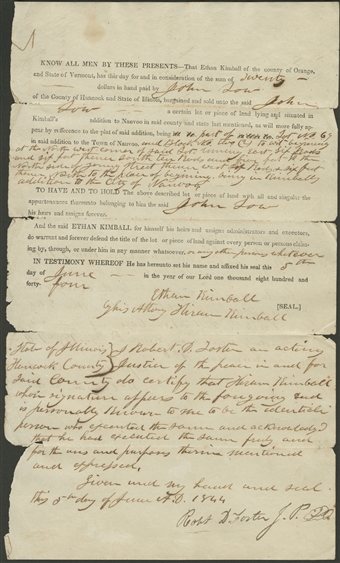 KNOW ALL MEN BY THESE PRESENTS—That Ethan Kimball of the county of Orange,
and State of Vermont, has this day for and in consideration of the sum of twenty
dollars in hand paid by John Low
of the County of Hancock and State of Illinois, bargained and sold unto the said John
Low a certain lot or piece of land lying and situated in
Kimball's addition to Nauvoo in said county and state last mentioned, as will more fully ap-
pear by reference to the plat of said addition, being a part of Lot
addition to the City of Nauvoo
TO HAVE AND TO HOLD The above described lot or piece of land with all and singular the
appurtenances thereunto belonging to him the said John Low
his heirs and assigns forever.
And the said ETHAN KIMBALL for himself his heirs and assigns administrators and executors,
do warrant and forever defend the title of the lot or piece of land against every person or persons claim-
ing by, through, or under him in any manner whatever, or any other person whatever
IN TESTIMONY WHEREOF He has hereunto set his name and affixed his seal this 8th
day of June in the year of our Lord one thousand eight hundred and
forty-four
Ethan Kimball
By his Attorny Hiram Kimball [SEAL.]
State of Illinois } I Robert D. Foster an acting
Hancock County } Justice of the peace in and for
Said County do certify that Hiram Kimball
whose signature appears to the foregoing Deed
is personally Known to me to be the identicle
person who executed the same and acknowledged
that he had executed the same freely and
for the uses and purposes therein mentioned
and expressed,
Given under my hand and seal
this 8th day of June A.D. 1844
Robt D Foster J. P.